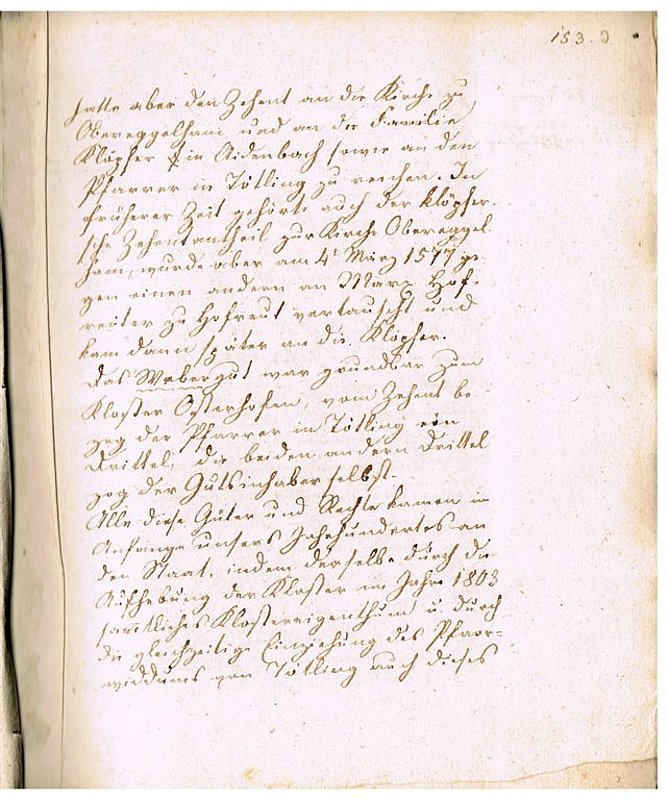 153. d
hatte aber den Zehent an die Kirche zu
Obereggelham und an die Familie
Klöpfer in Aidenbach sowie an den
Pfarrer in Tötling zu reichen. In
früherer Zeit gehörte auch der Klöpfer-
sche Zehentantheil zur Kirche Obereggel-
ham, wurde aber am 4t März 1577 ge-
gen einen andern an Marx Hof-
reiter zu Hofreut vertauscht und
kam dann später an die Klöpfer.
Das Webergut war grundbar zum
Kloster Osterhofen, vom Zehent be-
zog der Pfarrer in Tötling ein
Drittel, die beiden andern Drittel
zog der Gutsinhaber selbst.
Alle diese Güter und Rechte kamen im
Anfange unsers Jahrhundertes an
den Staat, indem derselbe durch die
Aufhebung der Klöster im Jahre 1803
sämtliches Klostereigenthum u. durch
die gleichzeitige Einziehung des Pfarr-
widdums von Tötling auch dieses